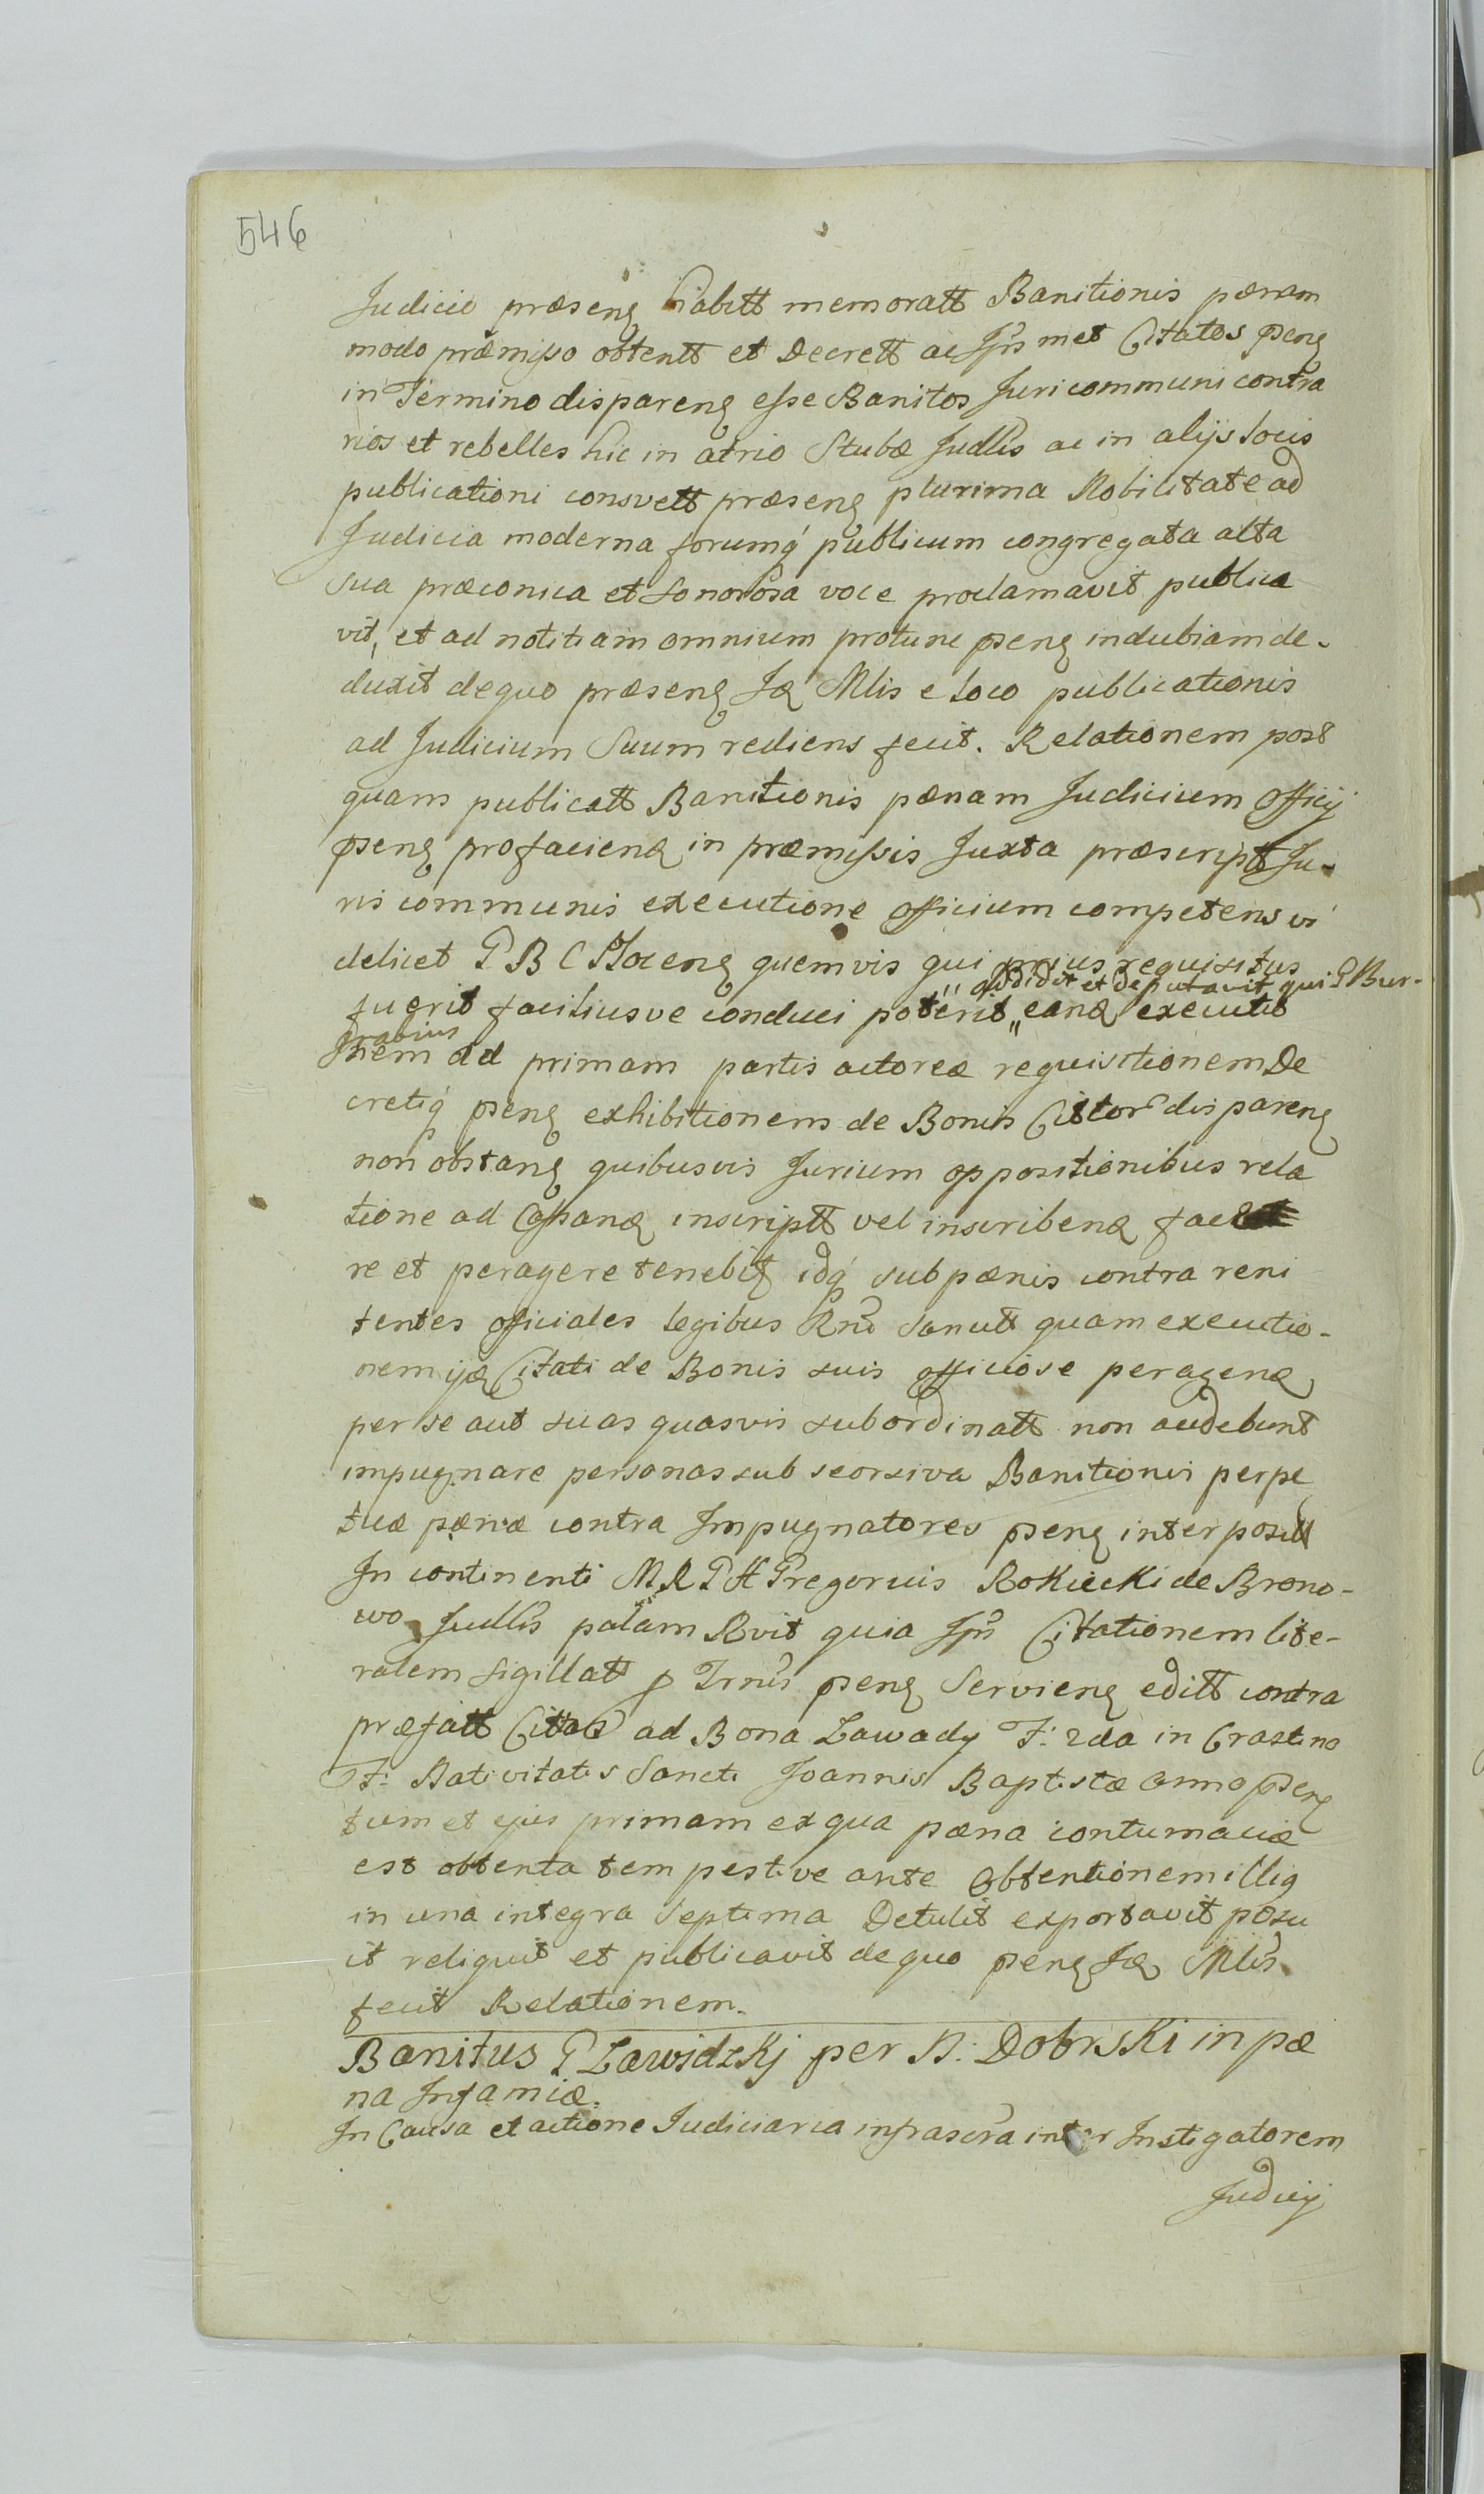 546
Judicio præseng habitt memoratt Banitionis pænam
modo præmisso obtentt et Decrett ac Ipsmet Citatos pseng
in Termino dispareng esse Banitos Juri communi contra
rios et rebelles hic in atrio Stubæ Judllis ac in alijs locis
publicationi consvett præseng plurima Nobilitate ad
Judicia moderna forumq publicum congregata alta
sua præconica et sonorosa voce proclamavit publica
vit, et ad notitiam omnium protunc pseng indubiam de-
duxit dequo præseng Mlis e loco publicationis
ad Judicium Suum rediens fecit. Relationem post
quam publicatt Banitionis pænam Judicium Officij
pseng pro faciend in præmissis Juxta præscriptt Ju-
ris communis executione Officium competens vi
delicet P B C Ploceng quemvis qui prius requisitus
addidit et deputavit qui P Bur-
fuerit faciliusve conduci poterit eand executio
grabius
nem ad primam partis actoreæ requisitionem De
cretiq pseng exhibitionem de Bonis Cittor dispareng
non obstang quibusvis Jurium oppositionibus rela
tione ad inscriptt vel inscribend face
re et peragere tenebit idq sub pænis contra reni
tentes officiales legibus Rni Sancitt quam executio-
nem Citati de Bonis suis officiose peragend
per se aut suas quasvis subordinatt non audebunt
impugnare personas sub seorsiva Banitionis perpe
tuæ pænæ contra Impugnatores pseng interpositt
In continenti M R P H Gregorius Rokiecki de Brono-
wo Judllis palam Rvit quia Citationem lite-
ralem sigillatt p pseng Servieng editt contra
præfatt Cittos ad Bona Zawady F: 2da in Crastino
F: Nativitatis Sancti Joannis Baptistæ Anno pseng
tum et ejus primam ex qua pæna contumaciæ
est obtenta tempestive ante Obtentionem illig
in una integra Septima Detulit exportavit posu
it reliquit et publicavit dequo pseng Mlis
fecit Relationem.
Banitus P Zawidzkj per N: Dobrski in pæ
na Infamiæ.
In Causa et actione Judiciaria infrascra inter Instigatorem
Judicij